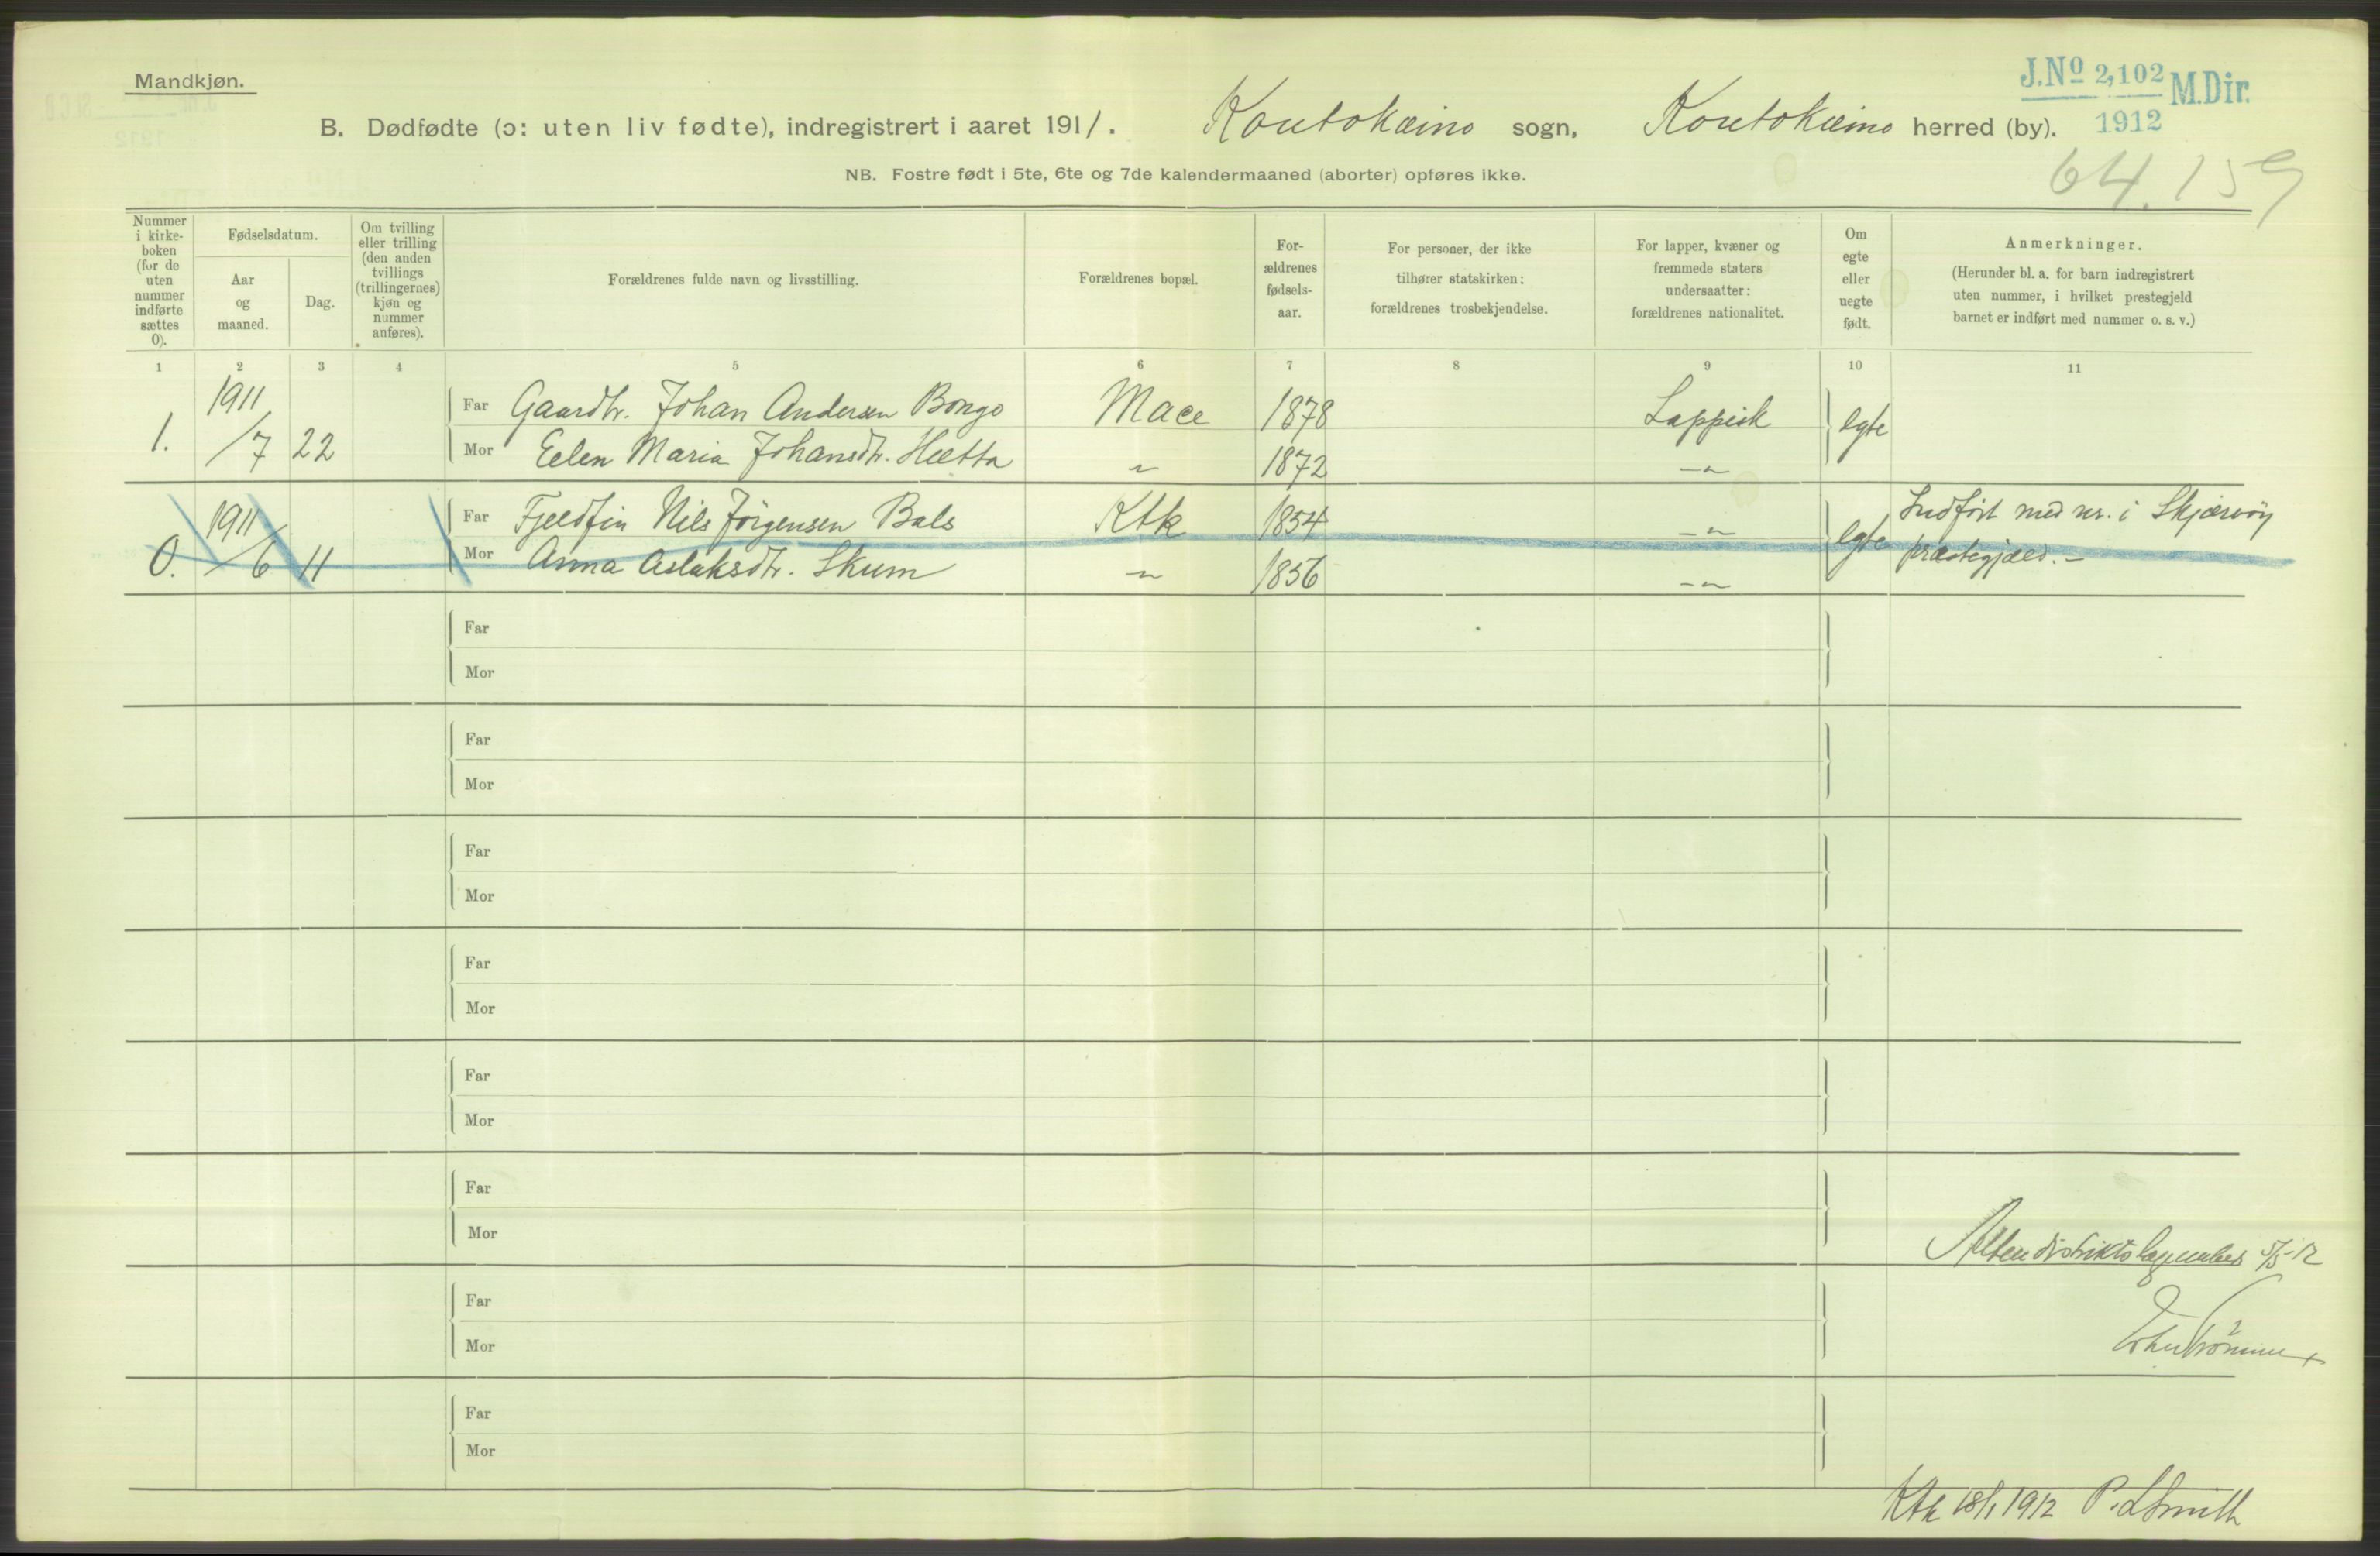 Mandkjøn.
J.Nº 2,102 M.Dir.
1912
B. Dødfødte (ɔ: uten liv fødte), indregistrert i aaret 1911. Koutokæino sogn, Koutokæino herred (by).
64.159
NB. Fostre født i 5te, 6te og 7de kalendermaaned (aborter) opføres ikke.
Nummer
i kirke-
boken
(for de
uten
nummer
indførte
sættes
0).
Fødselsdatum.
Aar
og
maaned.
Dag.
Om tvilling
eller trilling
(den anden
tvillings
(trillingernes)
kjøn og
nummer
anføres).
Forældrenes fulde navn og livsstilling.
Forældrenes bopæl.
For-
ældrenes
fødsels-
aar.
For personer, der ikke
tilhører statskirken:
forældrenes trosbekjendelse.
For lapper, kvæner og
fremmede staters
undersaatter:
forældrenes nationalitet.
Om
egte
eller
uegte
født.
Anmerkninger.
(Herunder bl. a. for barn indregistrert
uten nummer, i hvilket prestegjeld
barnet er indført med nummer o. s. v.)
1 2 3 4 5 6 7 8 9 10 11
1. 1911 /7 22
Far Gaardbr. Johan Andersen Bongo Mace 1878 Lappisk egte
Mor Eelen Maria Johansdtr. Hætta -"- 1872 -"-
0. 1911 /6 11
Far Fjeldfin Nils Jörgensen Bals Ktk 1854 -"- egte Indfört med nr. i Skjærvöy
Mor Anna Aslaksdtr. Skum -"- 1856 -"- præstegjæld. -
Far
Mor
Far
Mor
Far
Mor
Far
Mor
Far
Mor
Far
Mor
Alten distriktslægeembed 5/3-12
Far
Mor
Far
Mor
Ktk 18/1 1912 P. L Smith